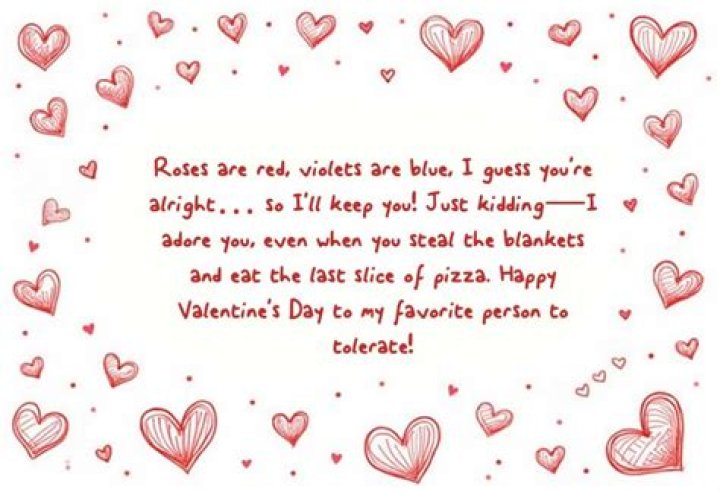 Roses are red, violets are blue, I guess you're
alright... so I'll keep you! Just kidding—I
adore you, even when you steal the blankets
and eat the last slice of pizza. Happy
Valentine's Day to my favorite person to
tolerate!